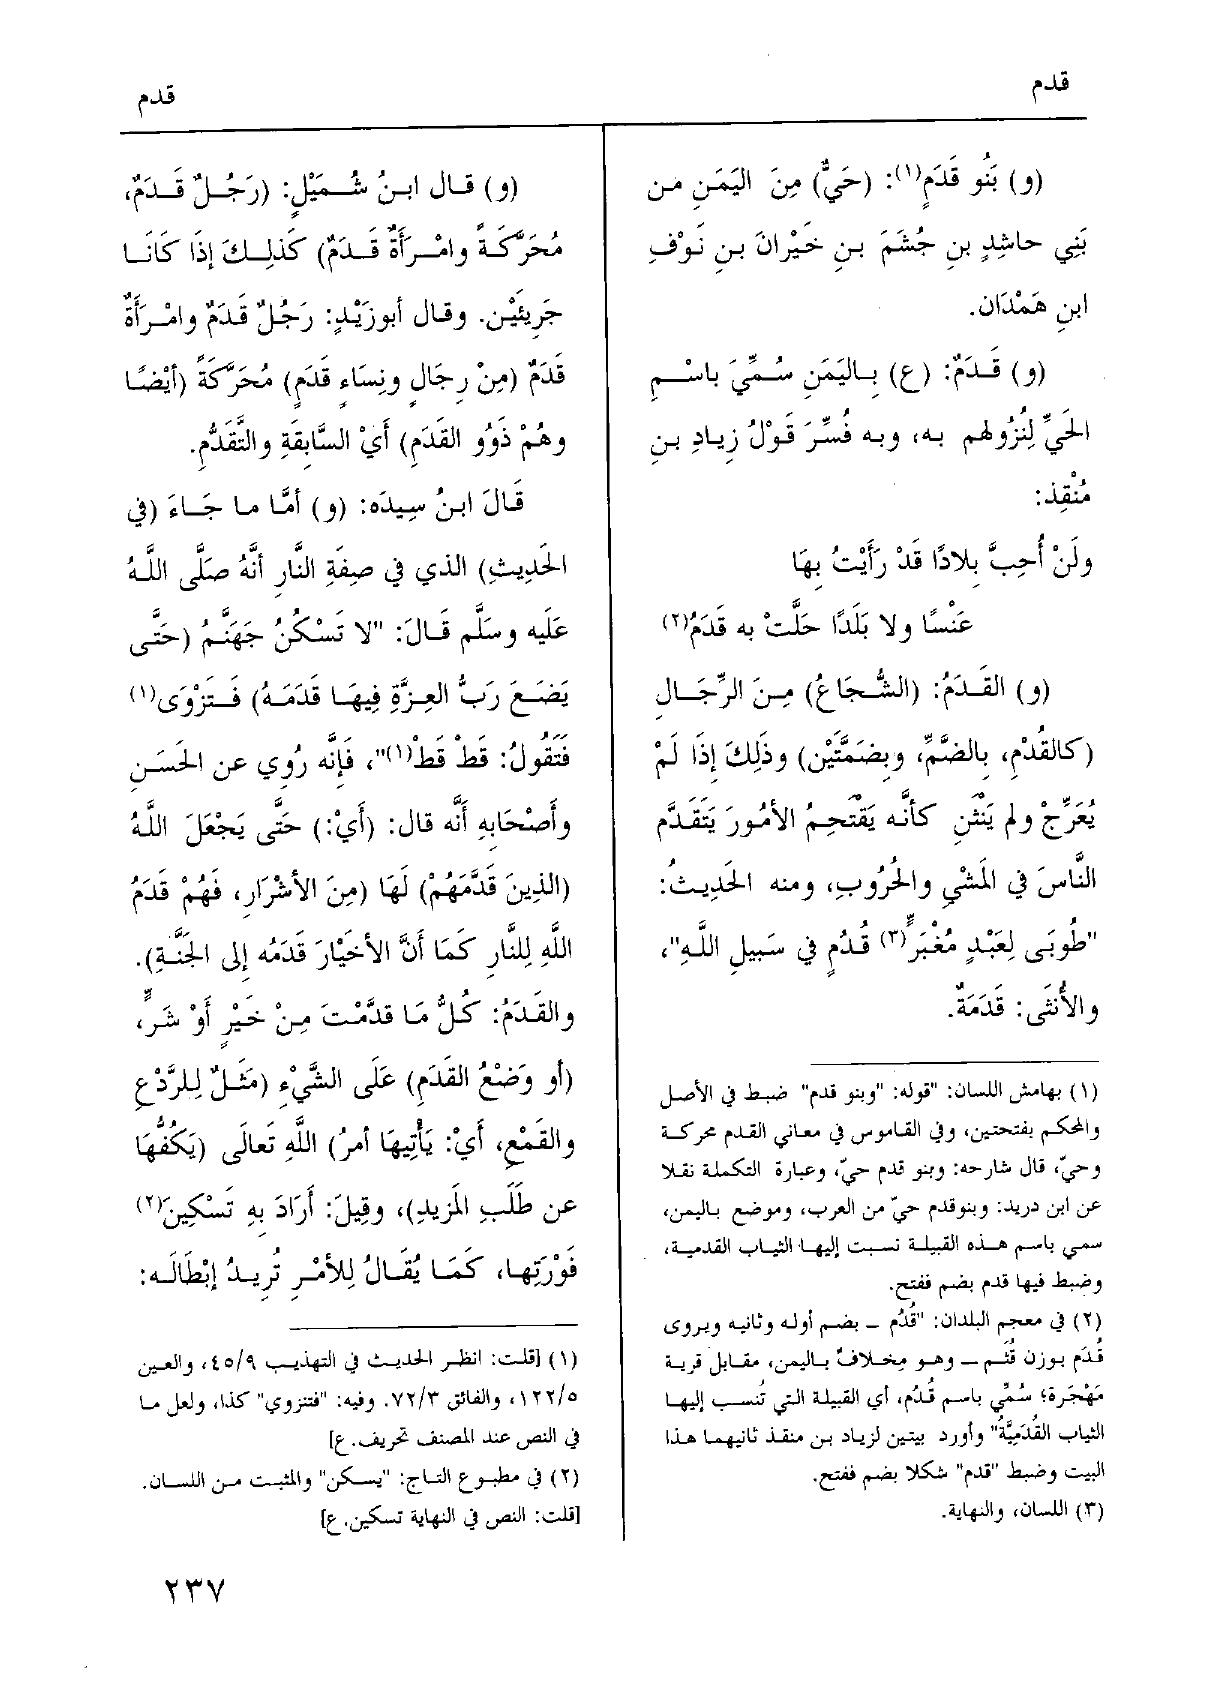 قدم
قدم
(و) بَنُو قَدَمٍ(١): (حَيٌّ) مِنَ اليَمَنِ مِن
بَنِي حاشِدِ بنِ جُشَمَ بنِ خَيْرانَ بنِ نَوْفِ
ابنِ هَمْدَان.
(و) قَدَمٌ: (ع) بِاليَمَنِ سُمِّيَ باسْمِ
الحَيِّ لِنُزُولهم به، وبه فُسِّرَ قَوْلُ زِيادِ بنِ
مُنْقِذ:
ولَنْ أُحِبَّ بِلادًا قَدْ رَأَيْتُ بِهَا
عَنْسًا ولا بَلَدًا حَلَّتْ به قَدَمُ(٢)
(و) القَدَمُ: (الشُّجَاعُ) مِنَ الرِّجَالِ
(كالقُدْمِ، بِالضَّمِّ، وبِضَمَّتَيْنِ) وذَلِكَ إذَا لَمْ
يُعَرِّجْ ولم يَنْثَنِ كأنَّه يَقْتَحِمُ الأمُورَ يَتَقَدَّم
النَّاسَ في المَشْيِ والحُرُوبِ، ومنه الحَدِيثُ:
"طُوبَى لِعَبْدٍ مُغْبَرٍّ(٣) قُدُمٍ في سَبِيلِ اللَّهِ"،
والأُنْثَى: قَدَمَةٌ.
(١) بهامش اللسان: "قوله: "وبنو قدم" ضبط في الأصل
والمحكم بفتحتين، وفي القاموس في معاني القدم محركة
وحيّ، قال شارحه: وبنو قدم حيّ، وعبارة التكملة نقلا
عن ابن دريد: وبنوقدم حيّ من العرب، وموضع باليمن،
سمي باسم هذه القبيلة نسبت إليها الثياب القدمية،
وضبط فيها قدم بضم ففتح.
(٢) في معجم البلدان: "قُدُم – بضم أوله وثانيه ويروى
قُدَم بوزن قُثَم – وهو مِخلافٌ باليمن، مقابل قرية
مَهْجَرة؛ سُمِّي باسم قُدُم، أي القبيلة التي تُنسب إليها
الثياب القُدَمِيَّةُ" وأورد بيتين لزياد بن منقذ ثانيهما هذا
البيت وضبط "قدم" شكلا بضم ففتح.
(٣) اللسان، والنهاية.
(و) قال ابنُ شُمَيْلٍ: (رَجُلٌ قَدَمٌ،
مُحَرَّكَةً وامْرَأَةٌ قَدَمٌ) كَذلِكَ إذَا كَانَا
جَرِيئَيْن. وقال أبوزَيْدٍ: رَجُلٌ قَدَمٌ وامْرَأَةٌ
قَدَمٌ (مِنْ رِجَالٍ ونِسَاءٍ قَدَمٍ) مُحَرَّكَةً (أيْضًا
وهُمْ ذَوُو القَدَمِ) أيْ السَّابقَةِ والتَّقَدُّمِ.
قَالَ ابنُ سِيدَه: (و) أمَّا ما جَاءَ (في
الحَدِيثِ) الذي في صِفَةِ النَّارِ أنَّهُ صَلَّى اللَّهُ
عَلَيه وسَلَّم قَالَ: "لا تَسْكُنُ جَهَنَّمُ (حَتَّى
يَضَعَ رَبُّ العِزَّةِ فِيهَا قَدَمَهُ) فَتَزْوَى(١)
فَتَقُولُ: قَطْ قَطْ(١)"، فَإنَّه رُوِي عن الحَسَنِ
وأصْحَابِهِ أنَّه قال: (أيْ:) حَتَّى يَجْعَلَ اللَّهُ
(الذِينَ قَدَّمَهُمْ) لَهَا (مِنَ الأشْرَارِ، فَهُمْ قَدَمُ
اللَّهِ لِلنَّارِ كَمَا أنَّ الأخْيَارَ قَدَمُه إلى الجَنَّةِ).
والقَدَمُ: كُلُّ مَا قدَّمْتَ مِنْ خَيْرٍ أوْ شَرٍّ،
(أو وَضْعُ القَدَمِ) عَلَى الشَّيْءِ (مَثَلٌ لِلرَّدْعِ
والقَمْعِ، أيْ: يَأتِيهَا أمرُ) اللَّهِ تَعالَى (يَكُفُّهَا
عن طَلَبِ المَزِيدِ)، وقِيلَ: أرَادَ بِهِ تَسْكِينَ(٢)
فَوْرَتِها، كَمَا يُقَالُ لِلأمْرِ تُرِيدُ إبْطَالَه:
(١) [قلت: انظر الحديث في التهذيب ٤٥/٩، والعين
١٢٢/٥، والفائق ٧٢/٣. وفيه: "فتنزوي" كذا، ولعل ما
في النص عند المصنف تحريف. ع]
(٢) في مطبوع التاج: "يسكن" والمثبت من اللسان.
[قلت: النص في النهاية تسكين. ع]
٢٣٧